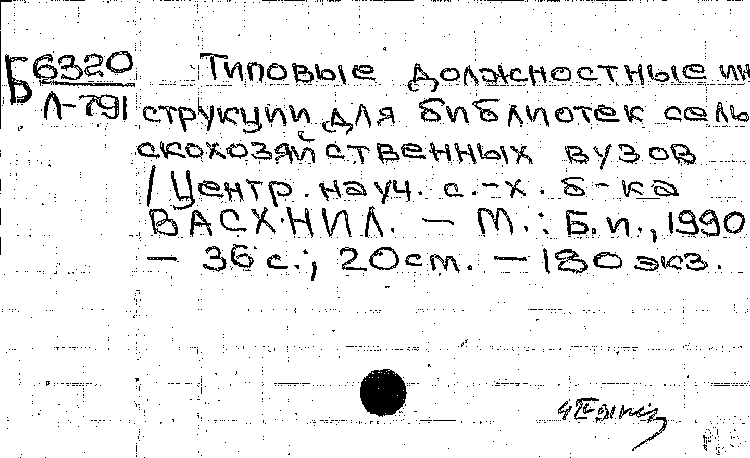 Б 6320 Типовые должностные ин
Л-791 струкции для библиотек сель
скохозяйственных вузов
/ Центр. науч. с.-х. б-ка
ВАСХНИЛ. — М.: Б.и., 1990
— 36 с.; 20 см. — 180 экз.